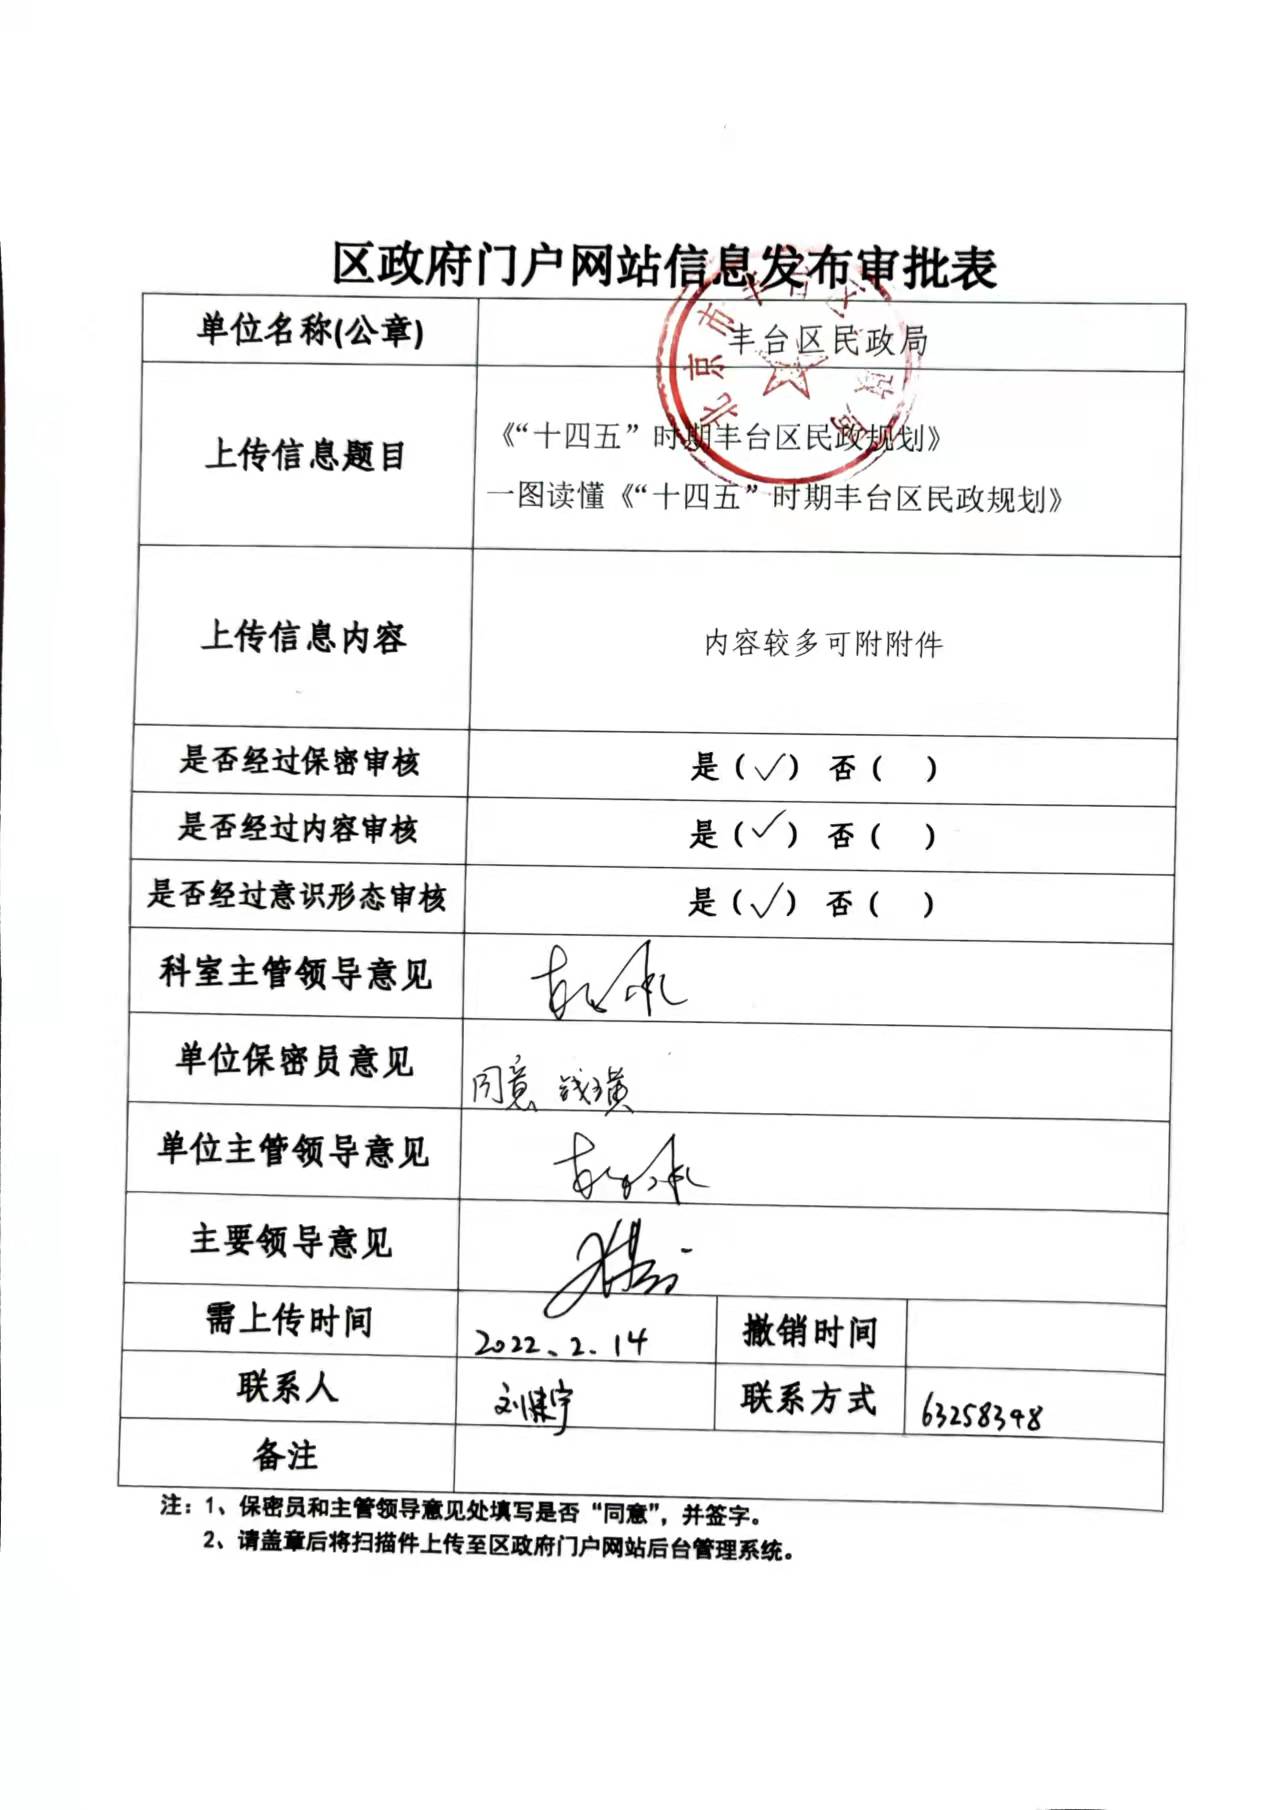 区政府门户网站信息发布审批表
单位名称(公章) 丰台区民政局
北京市丰台区民政局
上传信息题目 《“十四五”时期丰台区民政规划》
一图读懂《“十四五”时期丰台区民政规划》
上传信息内容 内容较多可附附件
是否经过保密审核 是(✓) 否( )
是否经过内容审核 是(✓) 否( )
是否经过意识形态审核 是(✓) 否( )
科室主管领导意见
单位保密员意见 同意
单位主管领导意见
主要领导意见
需上传时间 2022、2.14 撤销时间
联系人 联系方式 63258348
备注
注：1、保密员和主管领导意见处填写是否“同意”，并签字。
2、请盖章后将扫描件上传至区政府门户网站后台管理系统。